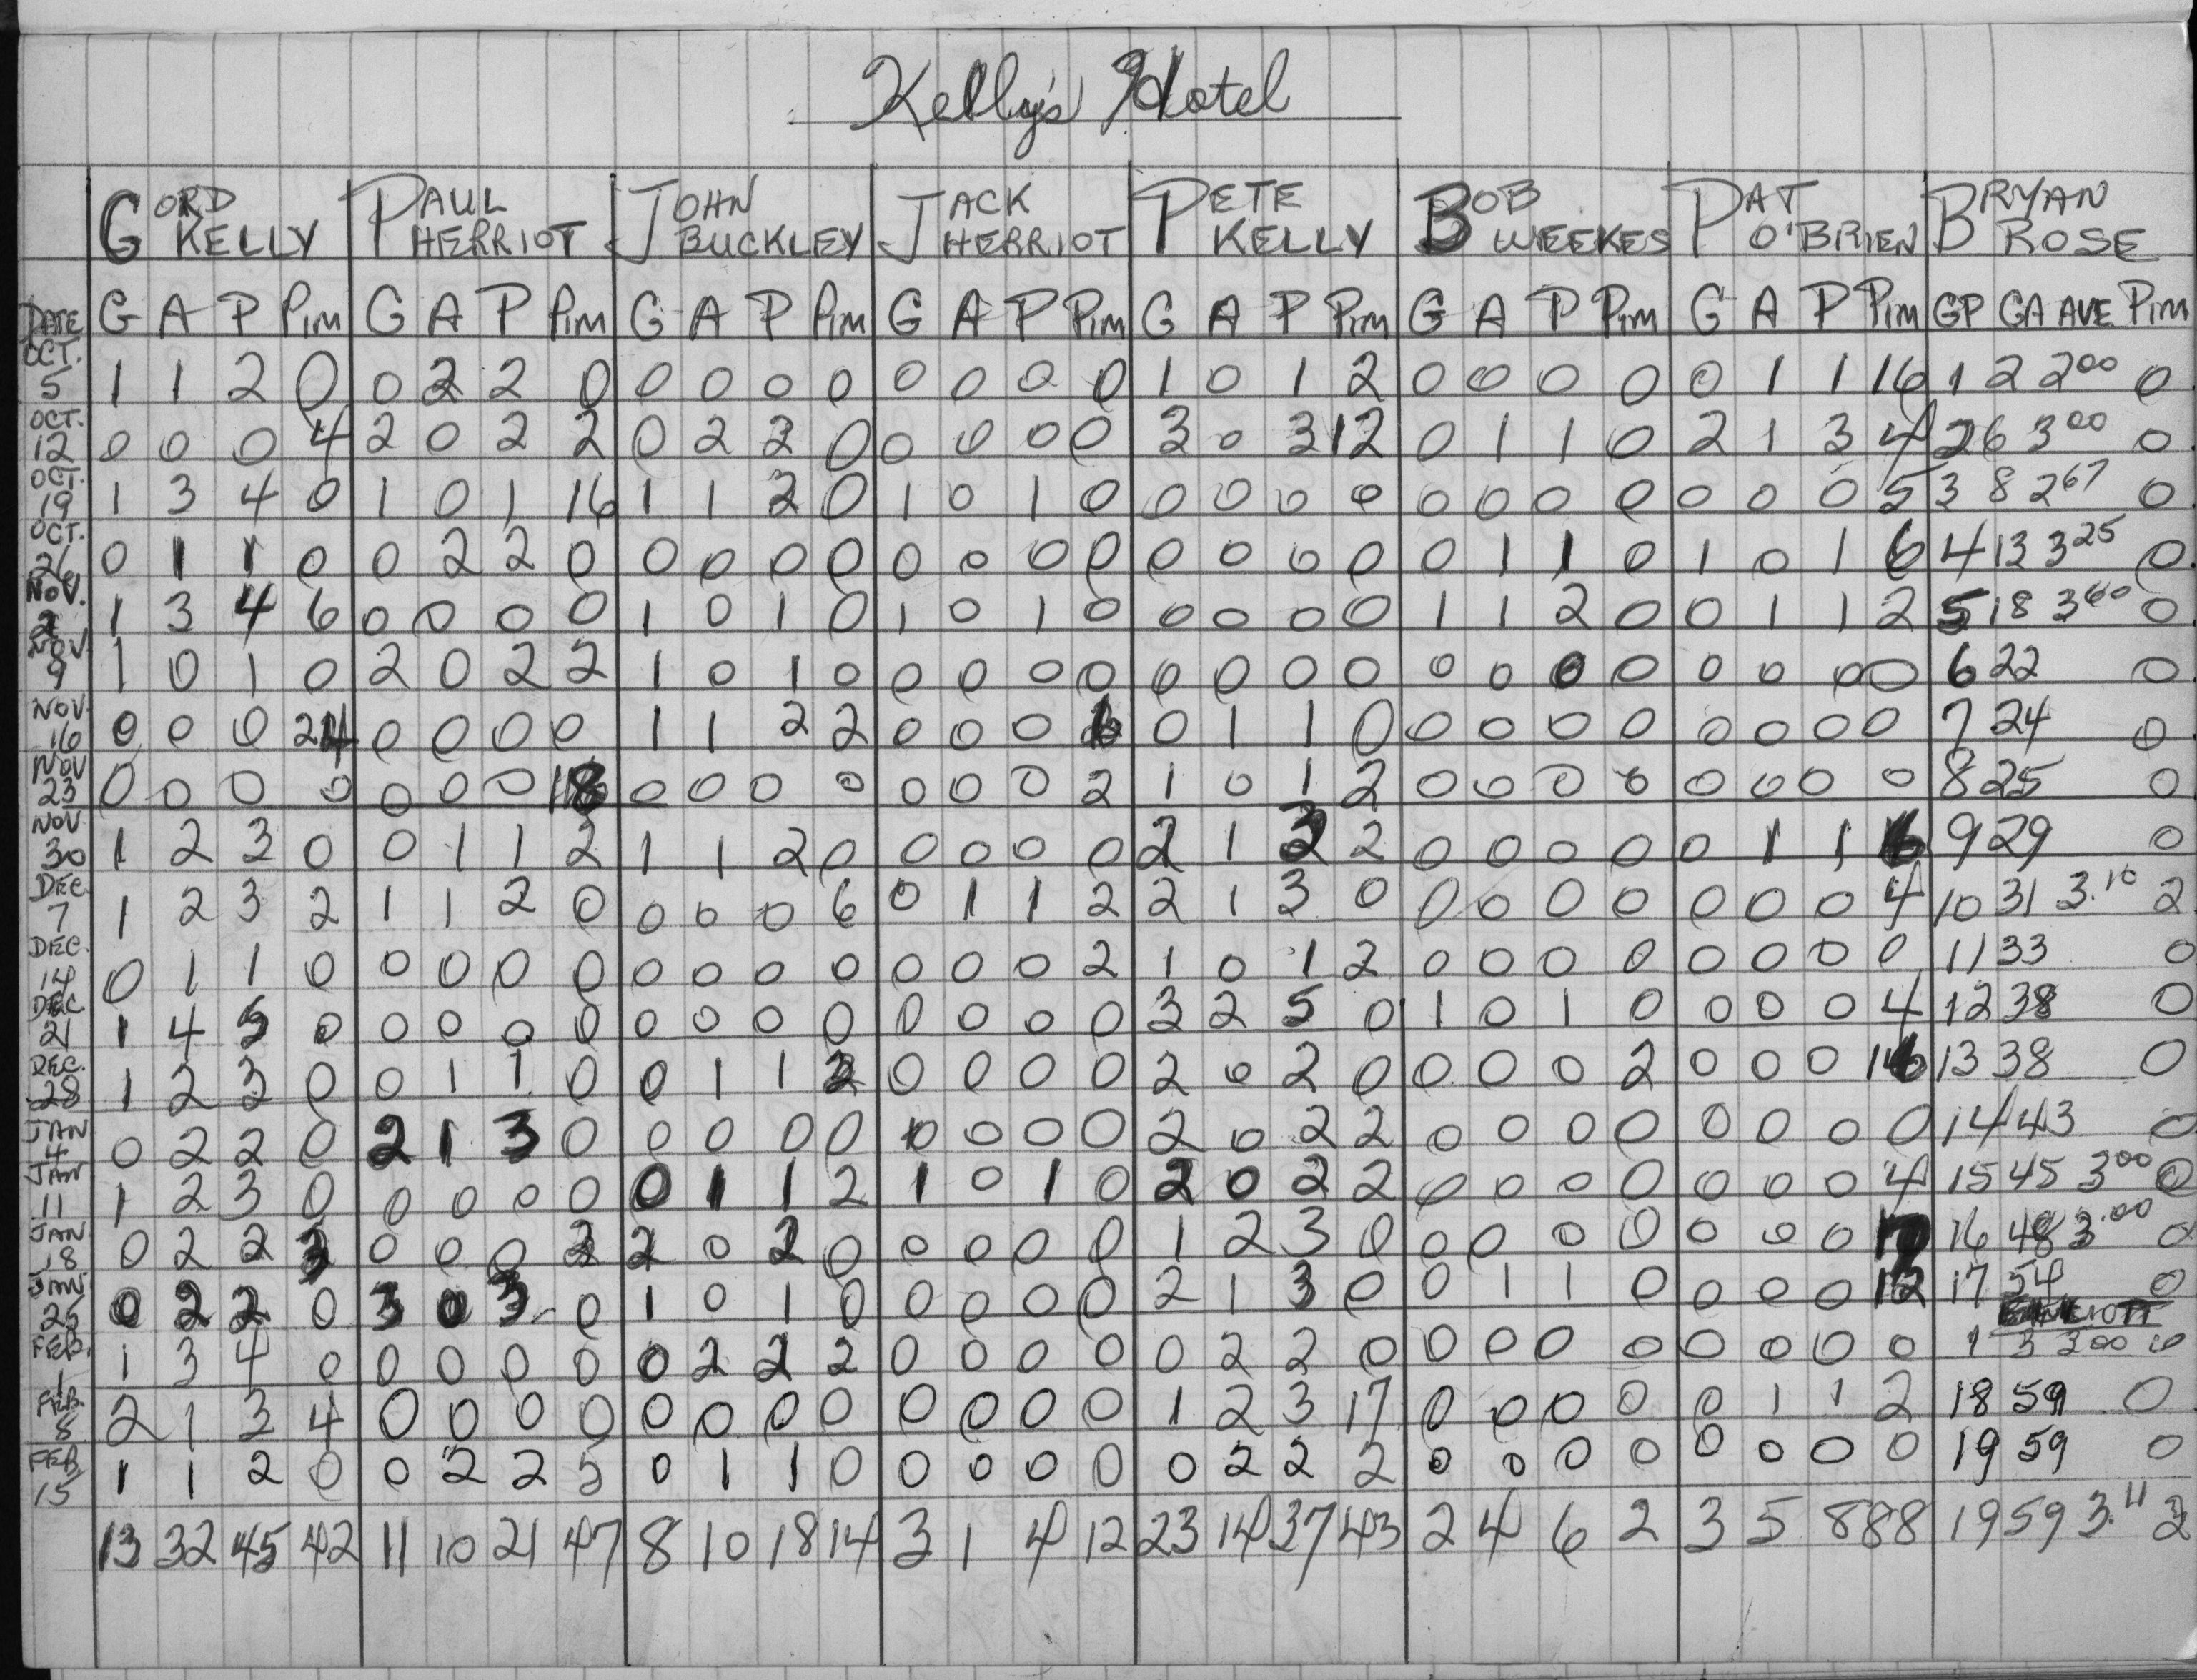 Kelly's Hotel
GORD KELLY PAUL HERRIOT JOHN BUCKLEY JACK HERRIOT PETE KELLY BOB WEEKES PAT O'BRIEN BRYAN ROSE
DATE G A P PIM G A P PIM G A P PIM G A P PIM G A P PIM G A P PIM G A P PIM GP GA AVE PIM
OCT. 5 1 1 2 0 0 2 2 0 0 0 0 0 0 0 0 0 1 0 1 2 0 0 0 0 0 1 1 16 1 2 2.00 0
OCT. 12 0 0 0 4 2 0 2 2 0 2 2 0 0 0 0 0 3 0 3 12 0 1 1 0 2 1 3 4 2 6 3.00 0
OCT. 19 1 3 4 0 1 0 1 16 1 1 2 0 1 0 1 0 0 0 0 0 0 0 0 0 0 0 0 5 3 8 2.67 0
OCT. 26 0 1 1 0 0 2 2 0 0 0 0 0 0 0 0 0 0 0 0 0 0 1 1 0 1 0 1 6 4 13 3.25 0
NOV. 2 1 3 4 6 0 0 0 0 1 0 1 0 1 0 1 0 0 0 0 0 1 1 2 0 0 1 1 2 5 18 3.60 0
NOV. 9 1 0 1 0 2 0 2 2 1 0 1 0 0 0 0 0 0 0 0 0 0 0 0 0 0 0 0 0 6 22 0
NOV. 16 0 0 0 24 0 0 0 0 1 1 2 2 0 0 0 0 1 1 0 0 0 0 0 0 0 0 0 7 24 0
NOV 23 0 0 0 0 0 0 0 18 0 0 0 0 0 0 0 2 1 0 1 2 0 0 0 0 0 0 0 0 8 25 0
NOV 30 1 2 3 0 0 1 1 2 1 1 2 0 0 0 0 0 2 1 3 2 0 0 0 0 0 1 1 9 29 0
DEC 7 1 2 3 2 1 1 2 0 0 0 0 6 0 1 1 2 2 1 3 0 0 0 0 0 0 0 0 4 10 31 3.10 2
DEC. 14 0 1 1 0 0 0 0 0 0 0 0 0 0 0 0 2 1 0 1 2 0 0 0 0 0 0 0 0 11 33 0
DEC 21 1 4 5 0 0 0 0 0 0 0 0 0 0 0 0 0 3 2 5 0 1 0 1 0 0 0 0 4 12 38 0
DEC. 28 1 2 3 0 0 1 1 0 0 1 1 2 0 0 0 0 2 0 2 0 0 0 0 2 0 0 0 16 13 38 0
JAN 4 0 2 2 0 2 1 3 0 0 0 0 0 0 0 0 0 2 0 2 2 0 0 0 0 0 0 0 0 14 43 0
JAN 11 1 2 3 0 0 0 0 0 0 1 1 2 1 0 1 0 2 0 2 2 0 0 0 0 0 0 0 4 15 45 3.00 0
JAN 18 0 2 2 0 0 0 2 2 0 2 0 0 0 0 0 1 2 3 0 0 0 0 0 0 0 0 16 48 3.00 0
JAN 25 0 2 2 0 3 0 3 0 1 0 1 0 0 0 0 0 2 1 3 0 0 1 1 0 0 0 0 12 17 54 0
FEB. 1 1 3 4 0 0 0 0 0 0 2 2 2 0 0 0 0 0 2 2 0 0 0 0 0 0 0 0 0 1 3 3.00 0
FEB. 8 2 1 3 4 0 0 0 0 0 0 0 0 0 0 0 0 1 2 3 17 0 0 0 0 0 1 1 2 18 59 0
FEB. 15 1 1 2 0 0 2 2 5 0 1 1 0 0 0 0 0 0 2 2 2 0 0 0 0 0 0 0 0 19 59 0
13 32 45 42 11 10 21 47 8 10 18 14 3 1 4 12 23 14 37 43 2 4 6 2 3 5 8 88 19 59 3.11 2